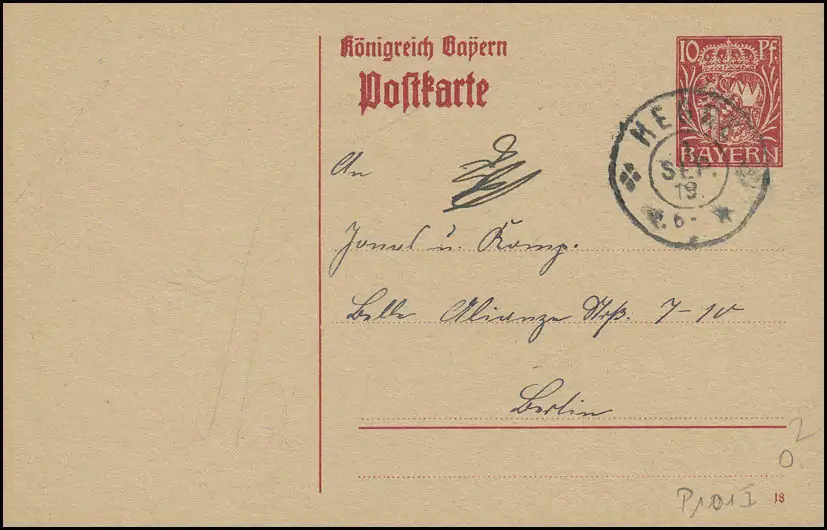 Königreich Bayern
Postkarte
10 Pf.
BAYERN
SEP.
19.
An
Jonas u. Komp.
Belle Alianze Str. 7-10
Berlin
2
0
18